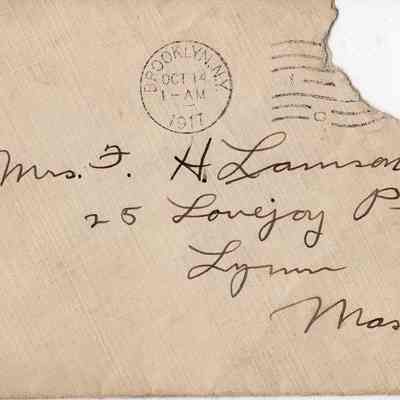 BROOKLYN, N.Y.
OCT 14
1-AM
1917
Mrs. F. H. Lamson
25 Lovejoy P
Lynn
Mas